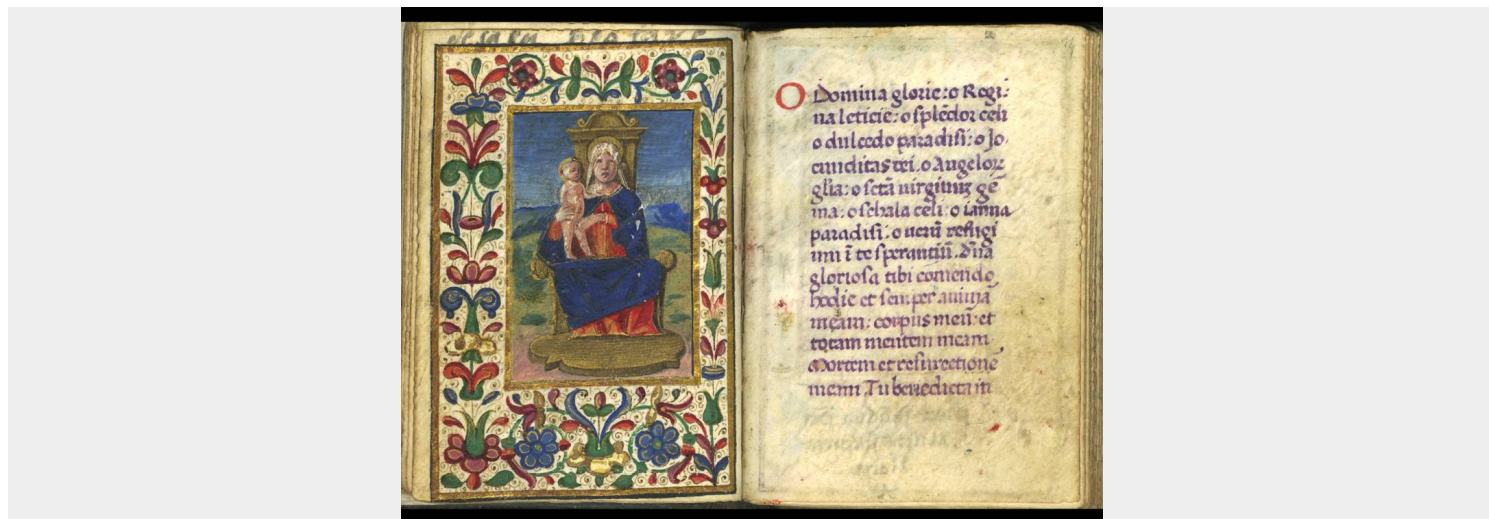 O Domina glorie: o Regi
na leticie: o splēdor celi
o dulcedo paradisi: o Jo
cunditas dei. o Angeloꝝ
gl̄ia: o sctā uirginuꝫ gē
ma: o schala celi: o ianua
paradisi: o uerū refugi
um ī te sperantiū. Dn̄a
gloriosa tibi comendo
hodie et semper animā
meam: corpus meū: et
totam mentem meam
Mortem et resurrectionē
meam. Tu benedicta in